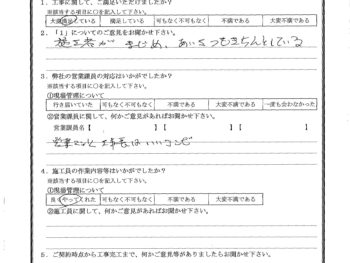 1. 工事に関して、ご満足いただけましたか？
※該当する項目に○を記入して下さい。
大変満足している 満足している 可もなく不可もなく 不満である 大変不満である
2. 「1」についてのご意見をお聞かせ下さい。
施工者が まじめ、あいさつもきちんとしている
3. 弊社の営業議員の対応はいかがでしたか？
※該当する項目に○を記入して下さい。
①現場管理について
行き届いていた 可もなく不可もなく 不満である 大変不満である 一度も会わなかった
②営業議員に関して、何かご意見があればお聞かせ下さい。
営業議員名【 】 【 】
営業さんと 工事長はいいコンビ
4. 施工員の作業内容等はいかがでしたか？
※該当する項目に○を記入して下さい。
①現場管理について
良くやってくれた 可もなく不可もなく 不満である 大変不満である
②施工員に関して、何かご意見があればお聞かせ下さい。
5. ご契約時点から工事完工まで、何かご意見等がありましたらお聞かせ下さい。